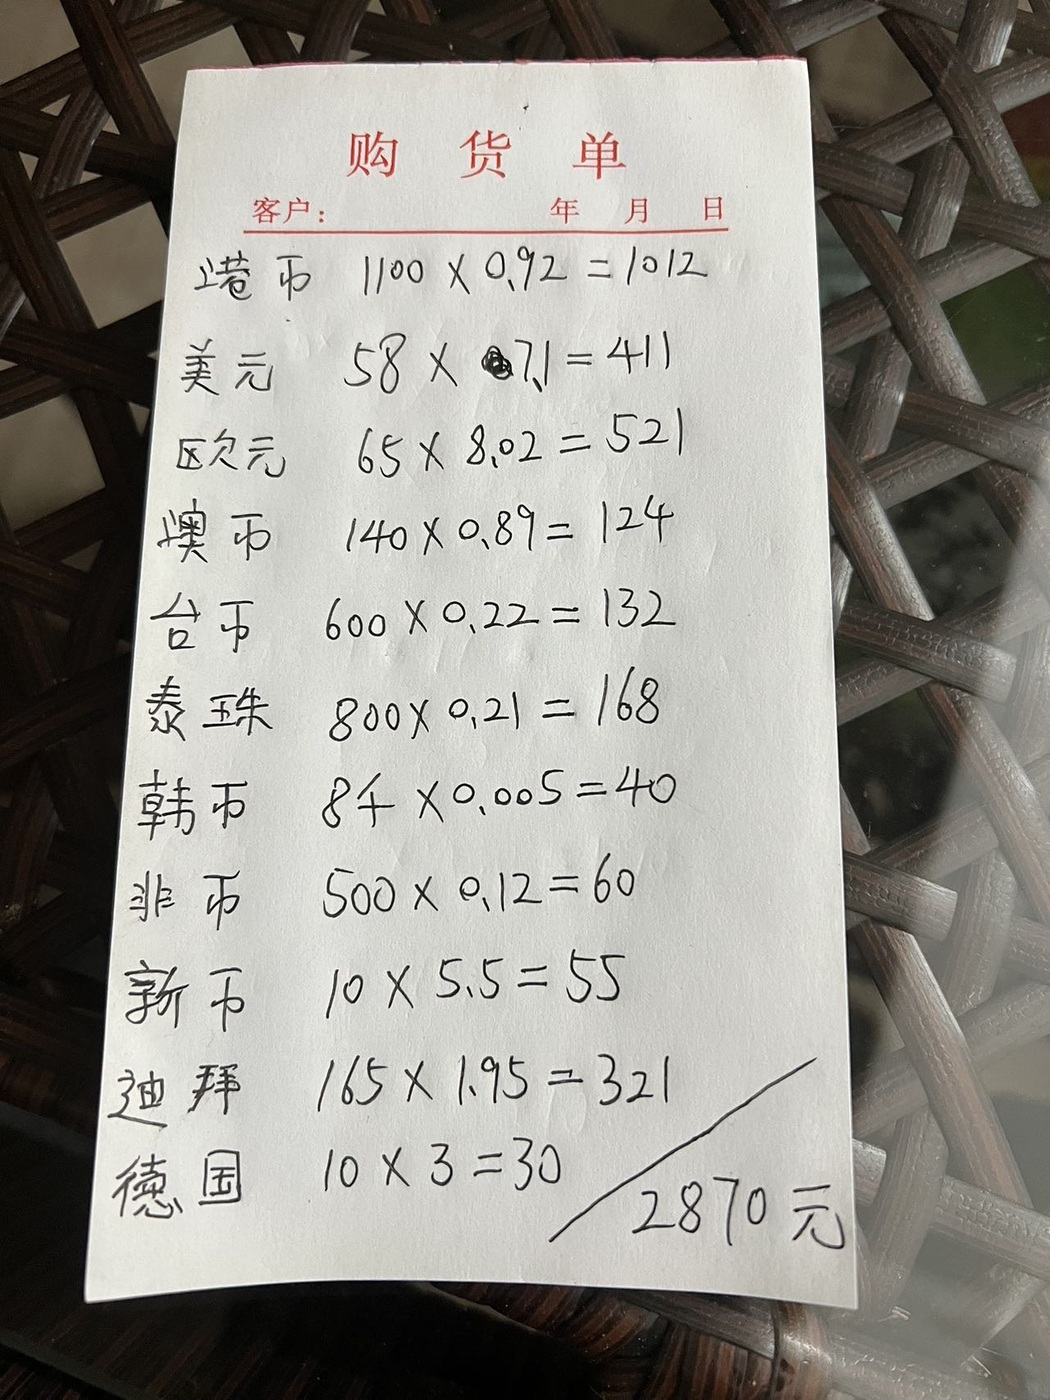 购货单
客户： 年 月 日
港币 1100×0.92=1012
美元 58×7.1=411
欧元 65×8.02=521
澳币 140×0.89=124
台币 600×0.22=132
泰珠 800×0.21=168
韩币 8千×0.005=40
非币 500×0.12=60
新币 10×5.5=55
迪拜 165×1.95=321
德国 10×3=30
2870元